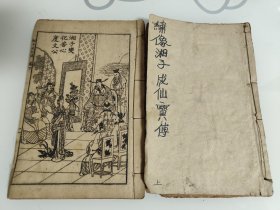 湘子變
化苦心
度文公
繡像湘子成仙寶傳
上